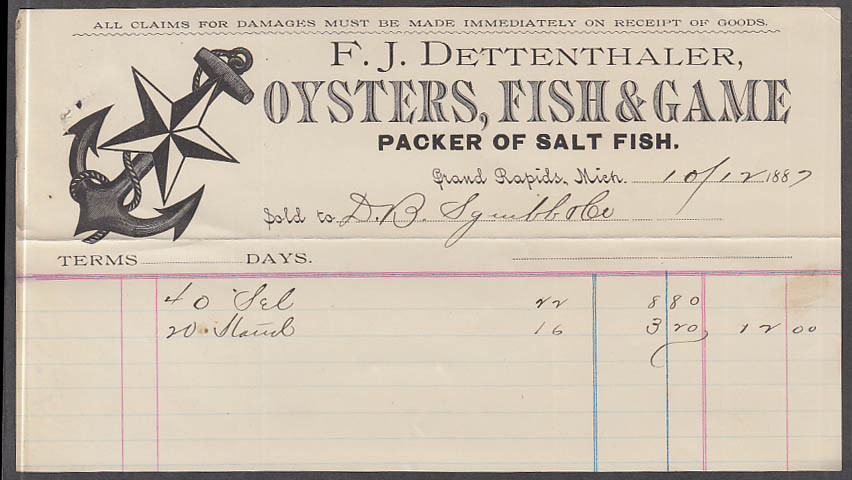 ALL CLAIMS FOR DAMAGES MUST BE MADE IMMEDIATELY ON RECEIPT OF GOODS.
F. J. DETTENTHALER,
OYSTERS, FISH & GAME
PACKER OF SALT FISH.
Grand Rapids, Mich. 10/12 1887
Sold to D. B. Squibb & Co
TERMS DAYS.
40 Sel 22 8 80
20 Stand 16 3 20 12 00